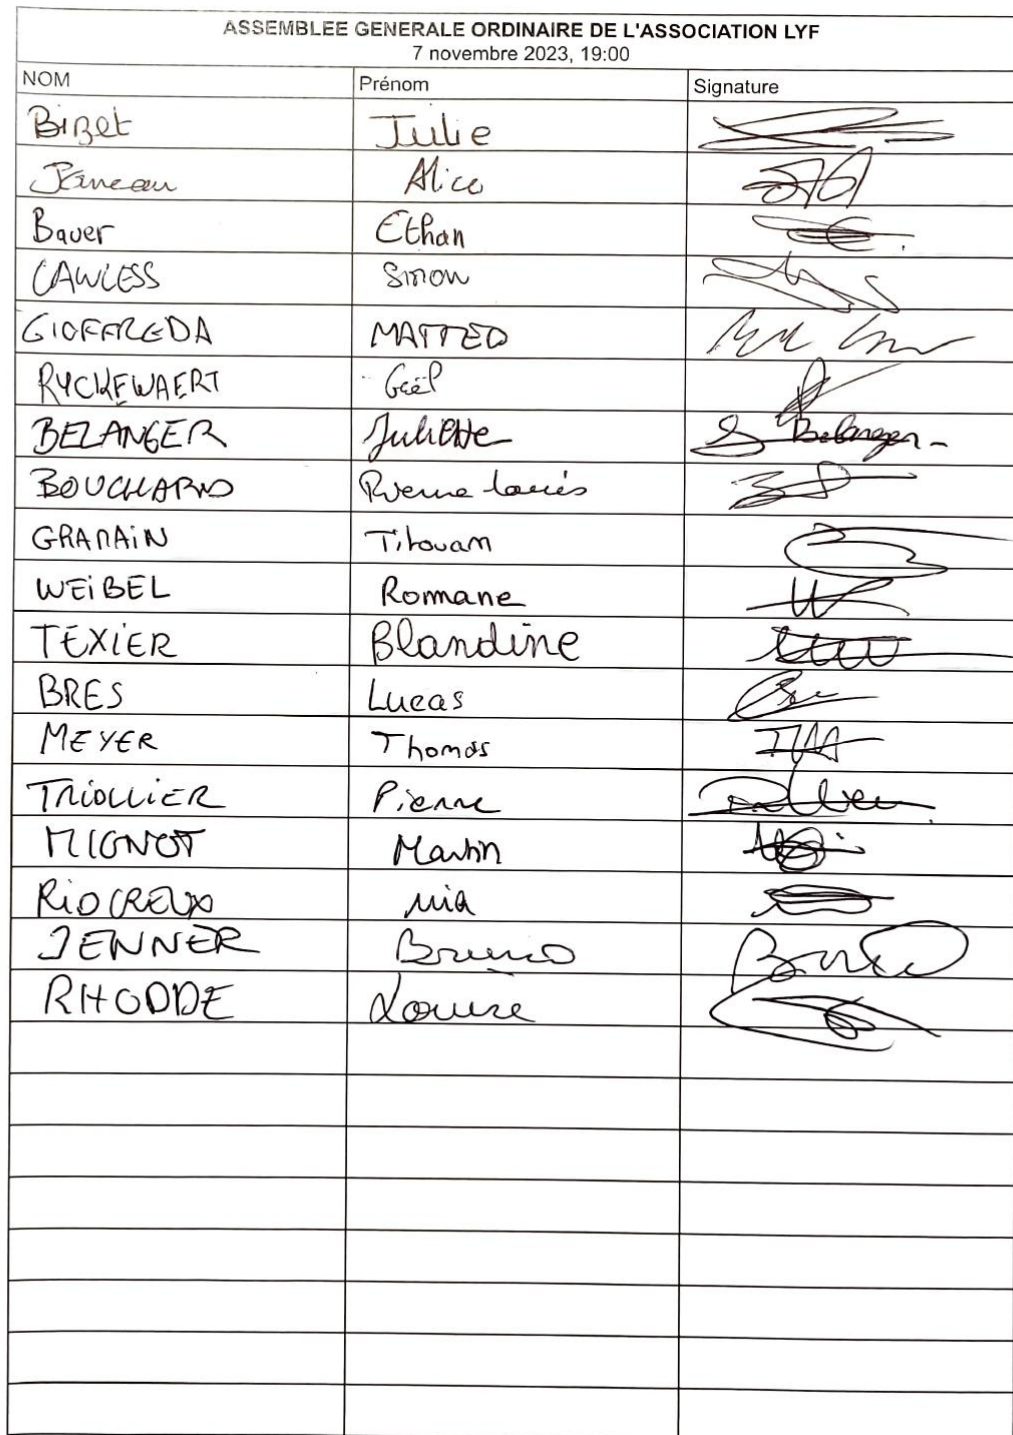 ASSEMBLEE GENERALE ORDINAIRE DE L'ASSOCIATION LYF
7 novembre 2023, 19:00
NOM Prénom Signature
Bizet Julie
Janeau Alice
Bauer Ethan
CAWLESS Simon
GIOFFREDA MATTEO
RYCKEWAERT Gaël
BELANGER Juliette Belanger
BOUCHARD Pierre Louis
GRAMAIN Titouan
WEIBEL Romane
TEXIER Blandine
BRES Lucas
MEYER Thomas
TRIOLLIER Pierre
MIGNOT Martin
RIOCREUX Mia
JENNER Bruno
RHODDE Louise